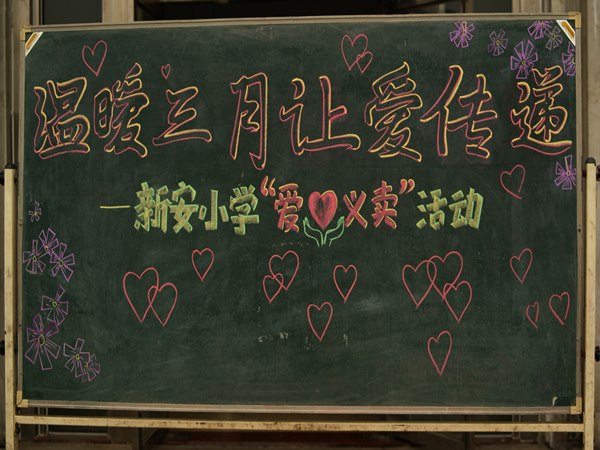 温暖三月让爱传递
—新安小学“爱心义卖”活动